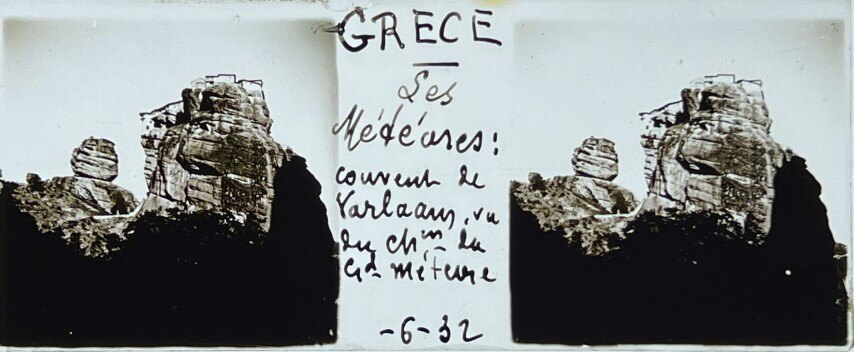 GRECE
Les
Météores:
couvent de
Varlaam, vu
du chin du
Gd Météore
-6-32